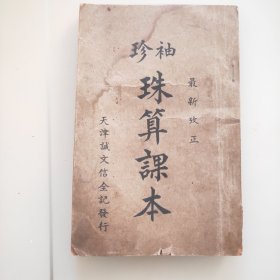 袖珍
最新改正
珠算課本
天津誠文信全記發行